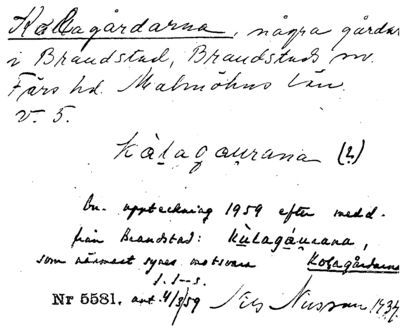 Kollagårdarna, några gårdar
i Brandstad, Brandstads sn.
Färs hd. Malmöhus län.
V. 5.
kàlagau̯rana (2)
En. uppteckning 1959 efter medd.
från Brandstad: kùlagáu̯rana,
som närmast synes motsvara Kolagårdarna
Nr 5581. ant. 4/3/59 Nils Nilsson 1934.